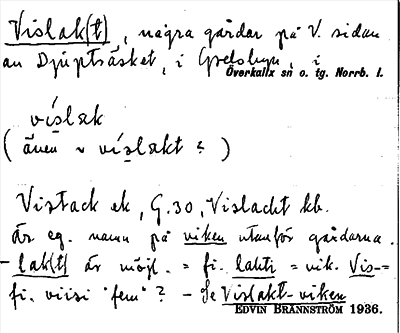 Vislak(t), några gårdar på V. sidan
av Djupträsket, i Grelsbyn, i
Överkalix sn o. tg. Norrb. l.
víslak
(även víslakt ? )
Vistack ek, G.30, Vislacht kb.
är eg. namn på viken utanför gårdarna.
- lak(t) är möjl. = fi. lahti = vik. Vis- =
fi. viisi "fem" ? - Se Vislakt-viken
EDVIN BRÄNNSTRÖM 1936.